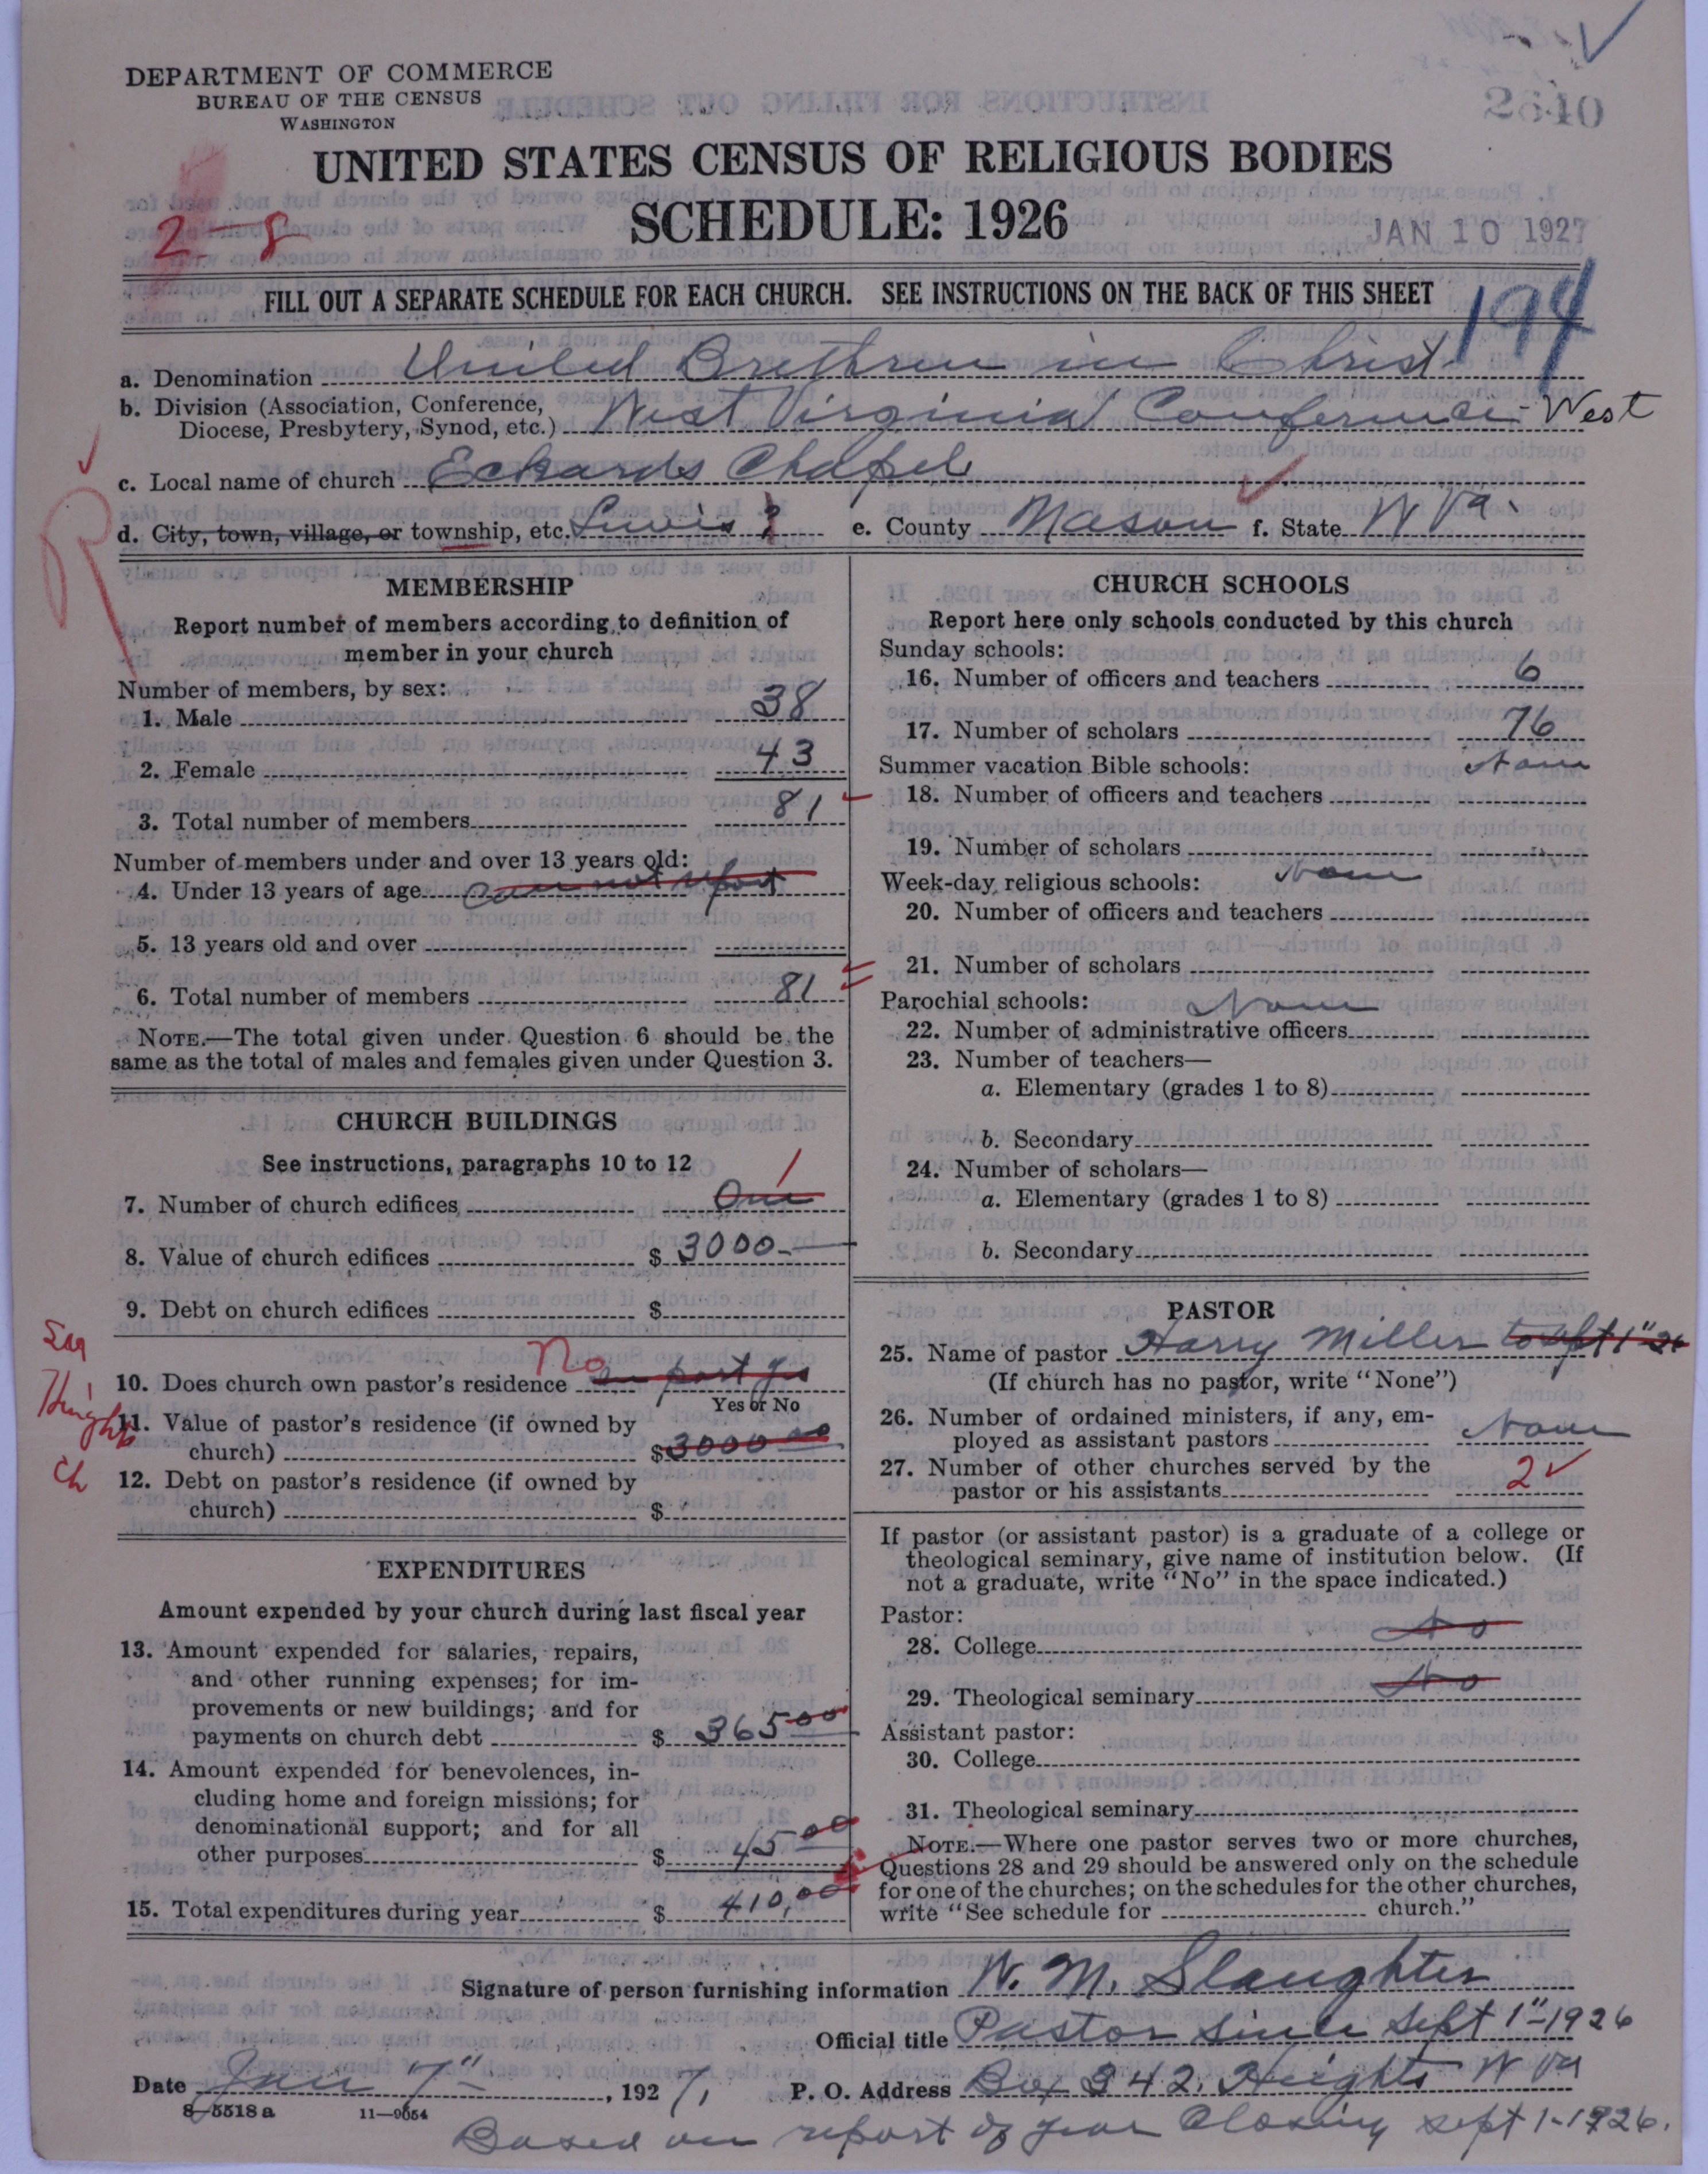 DEPARTMENT OF COMMERCE
BUREAU OF THE CENSUS
WASHINGTON
2640
UNITED STATES CENSUS OF RELIGIOUS BODIES
SCHEDULE: 1926
2-8
JAN 10 1927
FILL OUT A SEPARATE SCHEDULE FOR EACH CHURCH. SEE INSTRUCTIONS ON THE BACK OF THIS SHEET
194
a. Denomination United Brethren in Christ
b. Division (Association, Conference,
Diocese, Presbytery, Synod, etc.) West Virginia Conference - West
c. Local name of church Eckards Chapel
d. City, town, village, or township, etc. Lewis ? e. County Mason f. State W Va.
MEMBERSHIP
Report number of members according to definition of
member in your church
Number of members, by sex:
1. Male 38
2. Female 43
3. Total number of members 81
Number of members under and over 13 years old:
4. Under 13 years of age can not report
5. 13 years old and over
6. Total number of members 81
NOTE.—The total given under Question 6 should be the
same as the total of males and females given under Question 3.
CHURCH BUILDINGS
See instructions, paragraphs 10 to 12
7. Number of church edifices One 1
8. Value of church edifices $ 3000-
9. Debt on church edifices $
10. Does church own pastor's residence No in part yes
Yes or No
11. Value of pastor's residence (if owned by
church) $ 3000 00
12. Debt on pastor's residence (if owned by
church) $
EXPENDITURES
Amount expended by your church during last fiscal year
13. Amount expended for salaries, repairs,
and other running expenses; for im-
provements or new buildings; and for
payments on church debt $ 365 00
14. Amount expended for benevolences, in-
cluding home and foreign missions; for
denominational support; and for all
other purposes $ 45 00
15. Total expenditures during year $ 410,00
CHURCH SCHOOLS
Report here only schools conducted by this church
Sunday schools:
16. Number of officers and teachers 6
17. Number of scholars 76
Summer vacation Bible schools: None
18. Number of officers and teachers
19. Number of scholars
Week-day religious schools: None
20. Number of officers and teachers
21. Number of scholars
Parochial schools: None
22. Number of administrative officers
23. Number of teachers—
a. Elementary (grades 1 to 8)
b. Secondary
24. Number of scholars—
a. Elementary (grades 1 to 8)
b. Secondary
PASTOR
25. Name of pastor Harry Miller to Sept 1" 26
(If church has no pastor, write "None")
26. Number of ordained ministers, if any, em-
ployed as assistant pastors None
27. Number of other churches served by the
pastor or his assistants 2
If pastor (or assistant pastor) is a graduate of a college or
theological seminary, give name of institution below. (If
not a graduate, write "No" in the space indicated.)
Pastor:
28. College No
29. Theological seminary No
Assistant pastor:
30. College
31. Theological seminary
NOTE.—Where one pastor serves two or more churches,
Questions 28 and 29 should be answered only on the schedule
for one of the churches; on the schedules for the other churches,
write "See schedule for church."
Signature of person furnishing information W. M. Slaughter
Official title Pastor since Sept 1"-1926
Date Jan 7" , 1927, P. O. Address Box 342, Heights W Va
8-5518 a 11—9654
Based on report of year Closing Sept 1-1926.